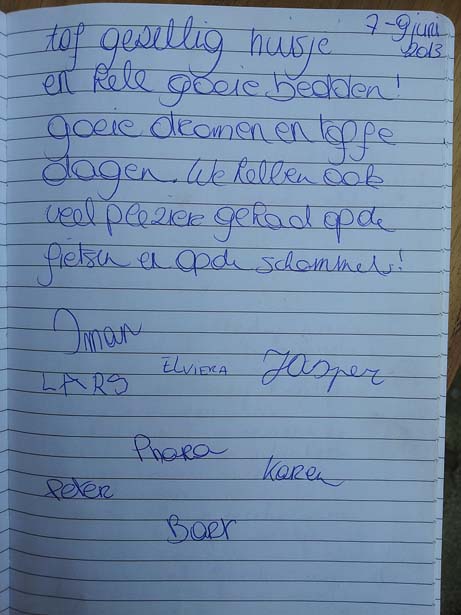 7-9 juni
2013
tof gezellig huisje
en hele goeie bedden!
goeie dromen en toffe
dagen. We hebben ook
veel plezier gehad op de
fietsen en op de schommel!
Iman
LARS ELVIERA Jasper
Phara
Karen
Peter
Baer